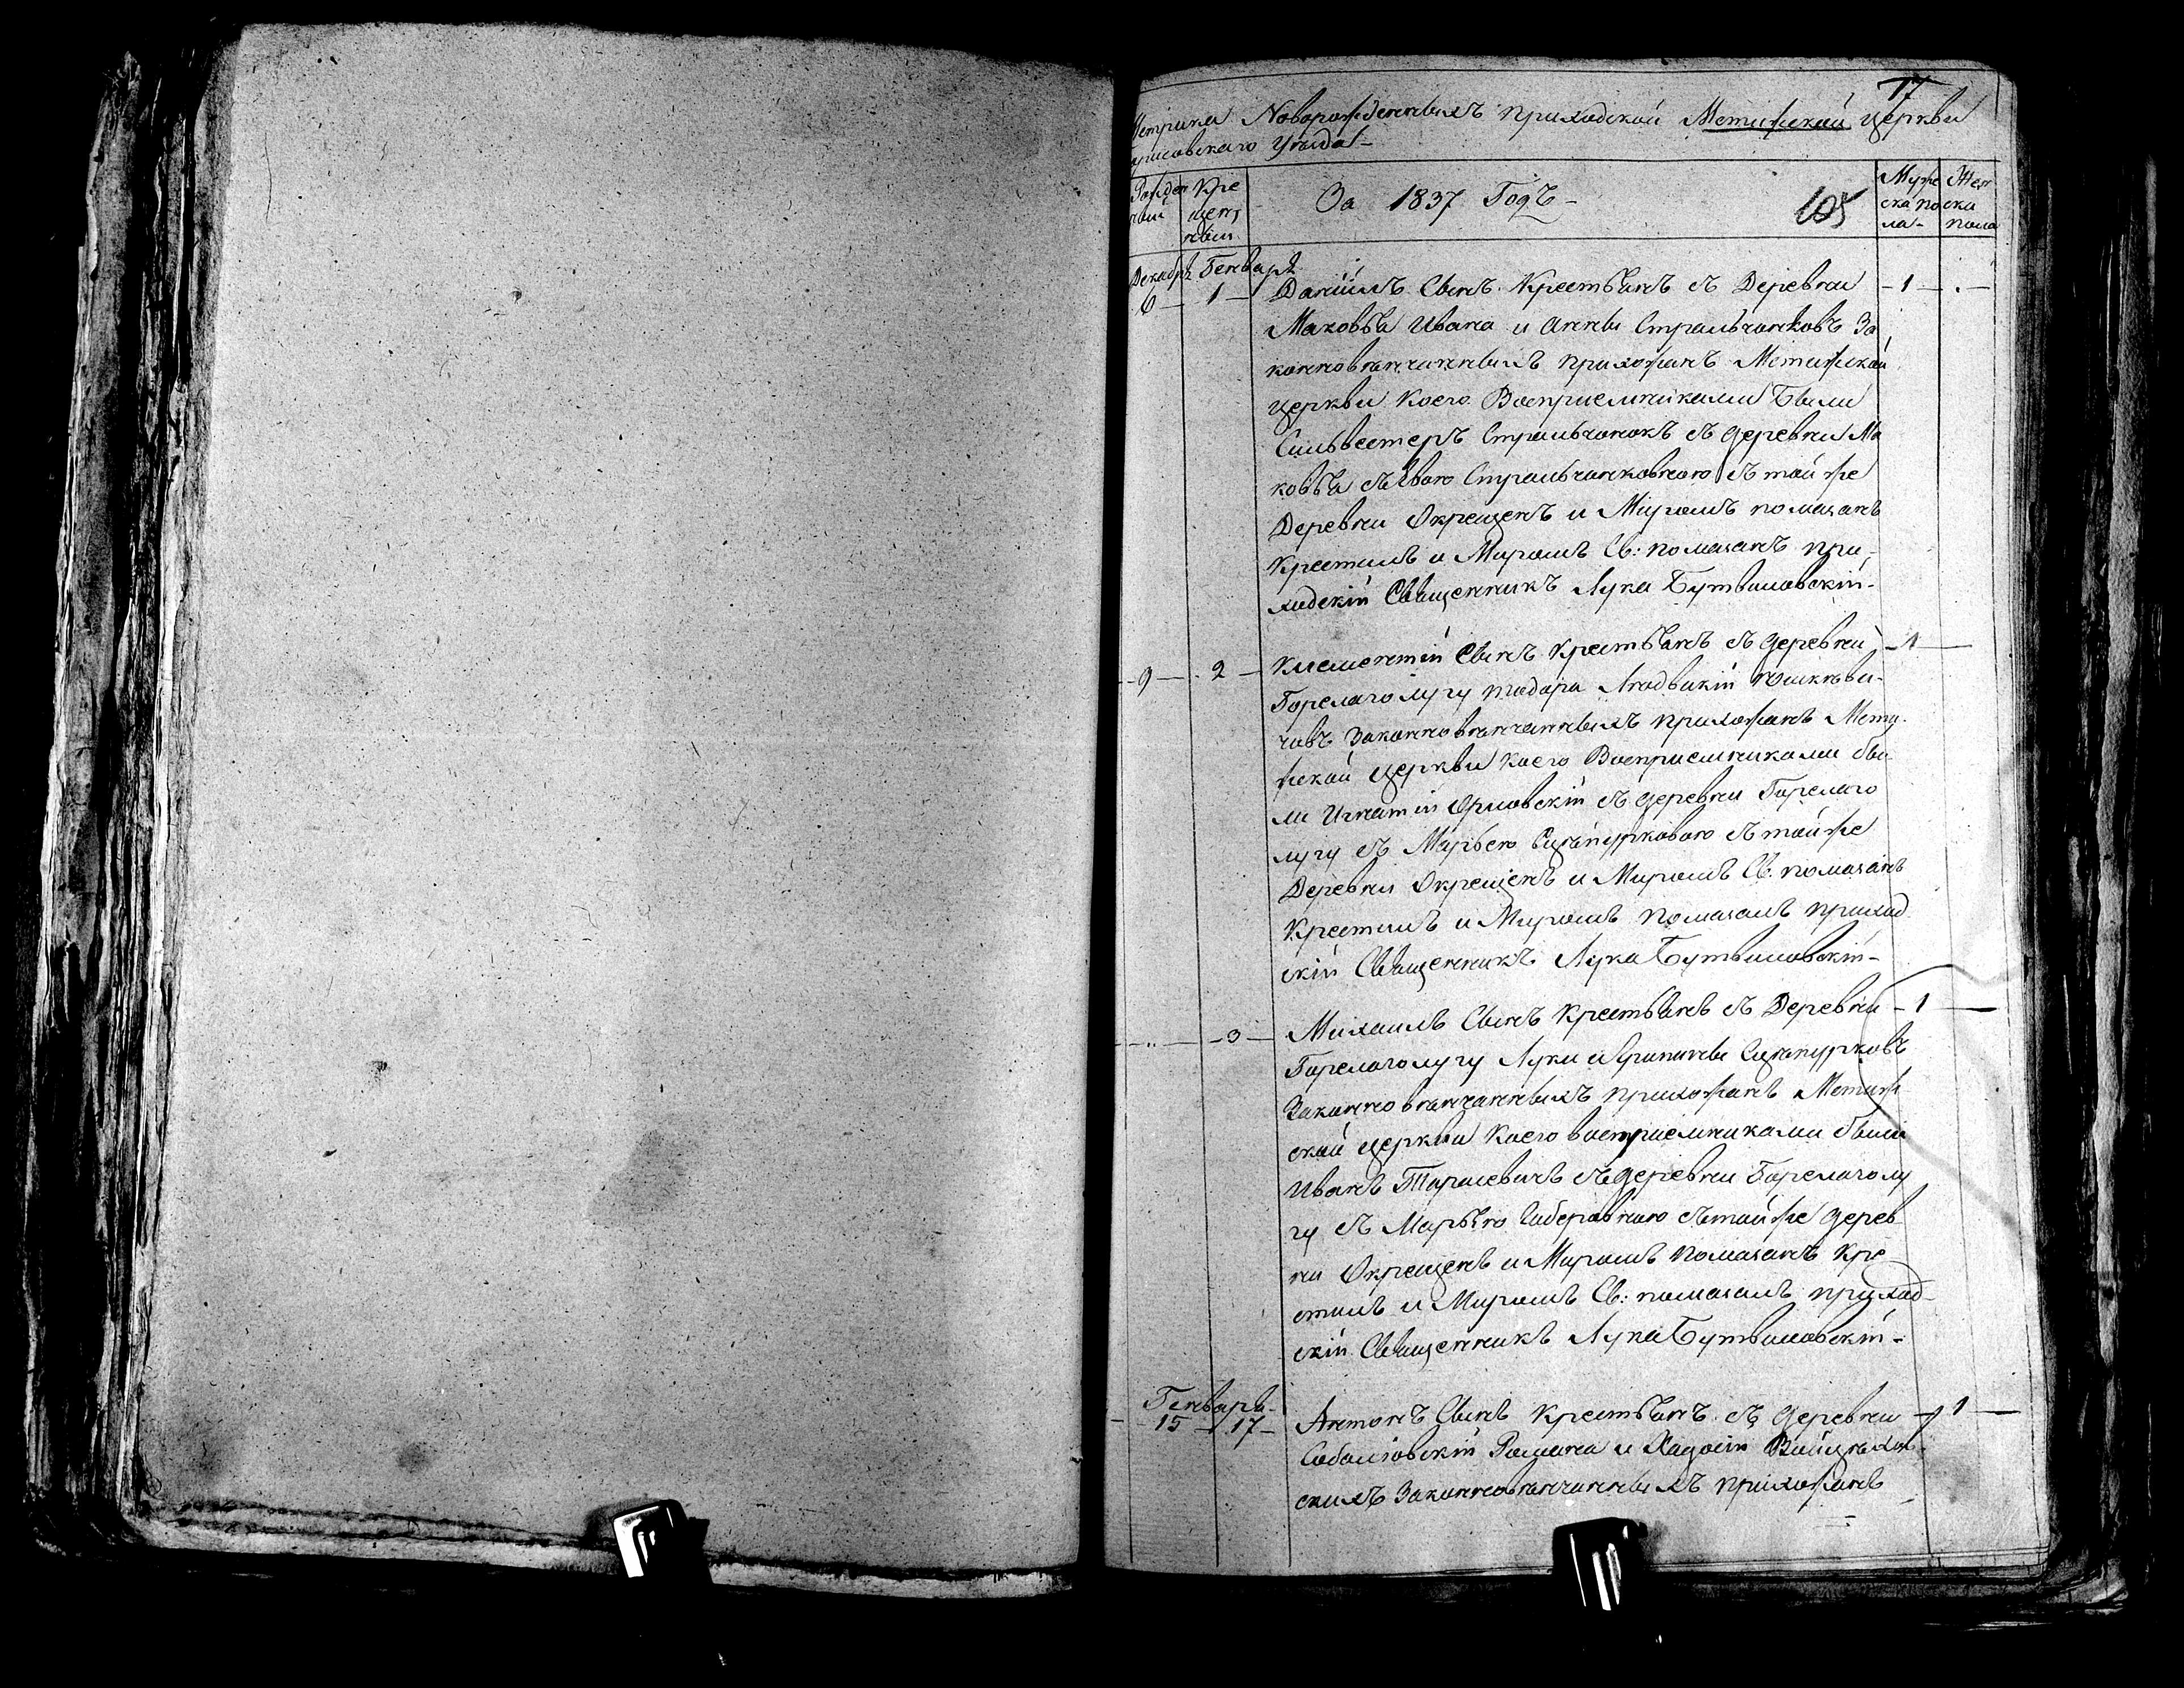 17
Метрика Новорожденныхъ приходской Метижской церкви
орисовскаго Уѣзда
Рожден
ныи
Кре
щен
ныи
За 1837 Годъ
105
Муже
ска по
ла
Жен
ски
пола
Декабрь Генварь
6 1 Данііилъ Сынъ Крестьянъ съ Деревни 1
Маковья Ивана и Анны Стральчонковъ За
конновѣнчанныхъ прихожанъ Метижской
церкви Коего Воспріемниками Были
Сильвестеръ Стральчонокъ съ деревни Ма
ковья съ Евою Стральчонковною съ той же
Деревни Окрещенъ и Миромъ помазанъ
Крестилъ и Миромъ Св: помазанъ при
ходскій Священникъ Лука Бутвиловскій
9 2 Климентій Сынъ Крестьянъ съ деревни 1
Горелаголугу Людвикіи
чивъ Законновѣнчанныхъ прихожанъ Мети
жской церкви Коего Воспріемниками бы
ли Игнатій Орловскій съ деревни Горелаго
лугу съ Марьею съ той же
Деревни Окрещенъ и Миромъ Св. помазанъ
Крестилъ и Миромъ помазалъ приход
скій Священникъ Лука Бутвиловскій
3 Михаилъ Сынъ Крестьянъ съ Деревни 1
Горелаголугу Луки и
Законно вѣнчанныхъ прихожанъ Метиж
ской церкви Коего воспріемниками были
Иванъ Тарасевичъ съ деревни Горелаголу
гу съ Марьею съ той же дерев
ни Окрещенъ и Миромъ помазанъ Кре
стилъ и Миромъ Св: помазалъ приход
скій Священникъ Лука Бутвиловскій
Генварь
15 17 Антонъ Сынъ Крестьянъ съ деревни 1
Романа и
скихъ Законновѣнчанныхъ прихожанъ